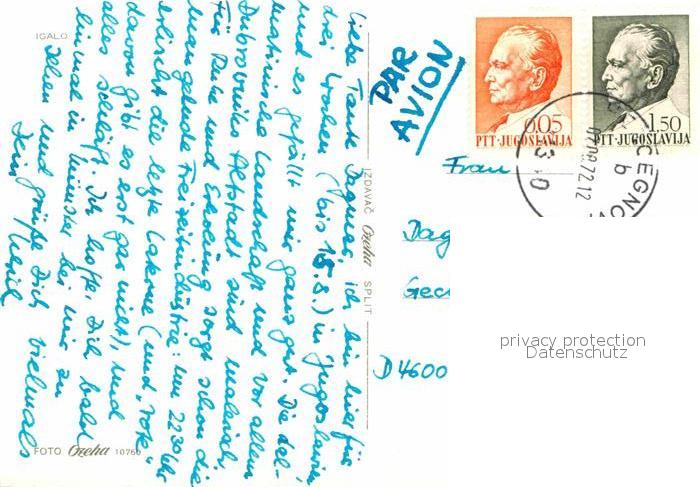 IGALO
Liebe Tante Dagmar, ich bin hier für
drei Wochen (bis 15.8.) in Jugoslawien
und es gefällt mir ganz gut. Die dal-
matinische Landschaft und vor allem
Dubrovniks Altstadt sind malerisch,
für Ruhe und Erholung sorgt schon die
mangelnde Freizeitindustrie: um 22 30 Uhr
erlischt die letzte Laterne (und "rote"
davon gibt es erst gar nicht!) und
alles schläft. Ich hoffe, Dich bald
einmal in Münster bei mir zu
sehen und grüße Dich vielmals
Dein
FOTO Ozeha 10760
IZDAVAČ Ozeha SPLIT
PAR
AVION
0.05
PTT·JUGOSLAVIJA
1.50
PTT·JUGOSLAVIJA
b
Frau
Dag
D 4600
privacy protection
Datenschutz